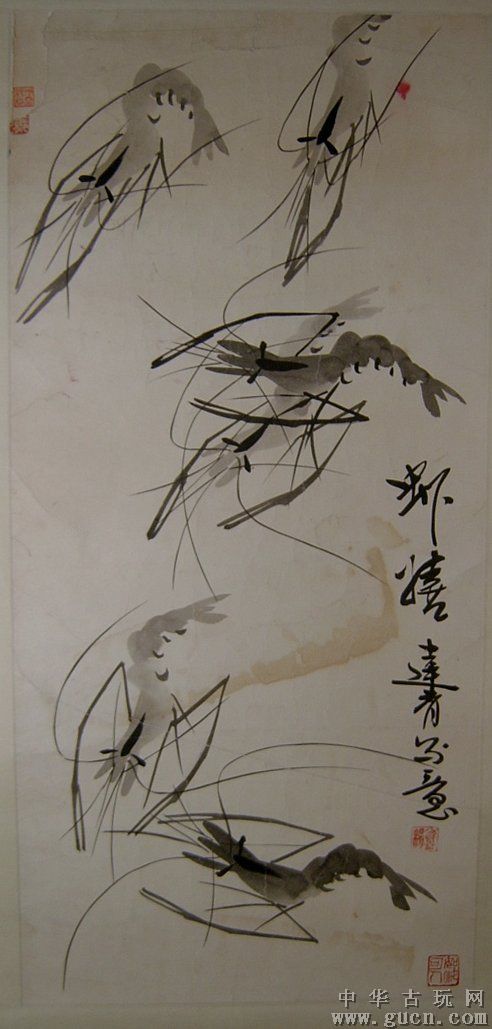 虾嬉
達青写意
中华古玩网
www.gucn.com